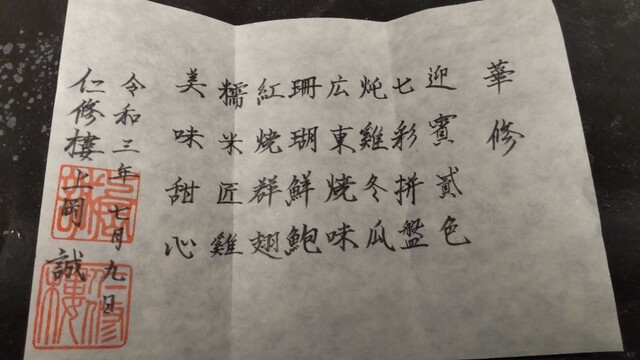 華修
迎賓貳色
七彩拼盤
炖雞冬瓜
広東焼味
珊瑚鮮鮑
紅焼群翅
糯米匠雞
美味甜心
令和三年七月九日
仁修樓上岡誠
仁修樓